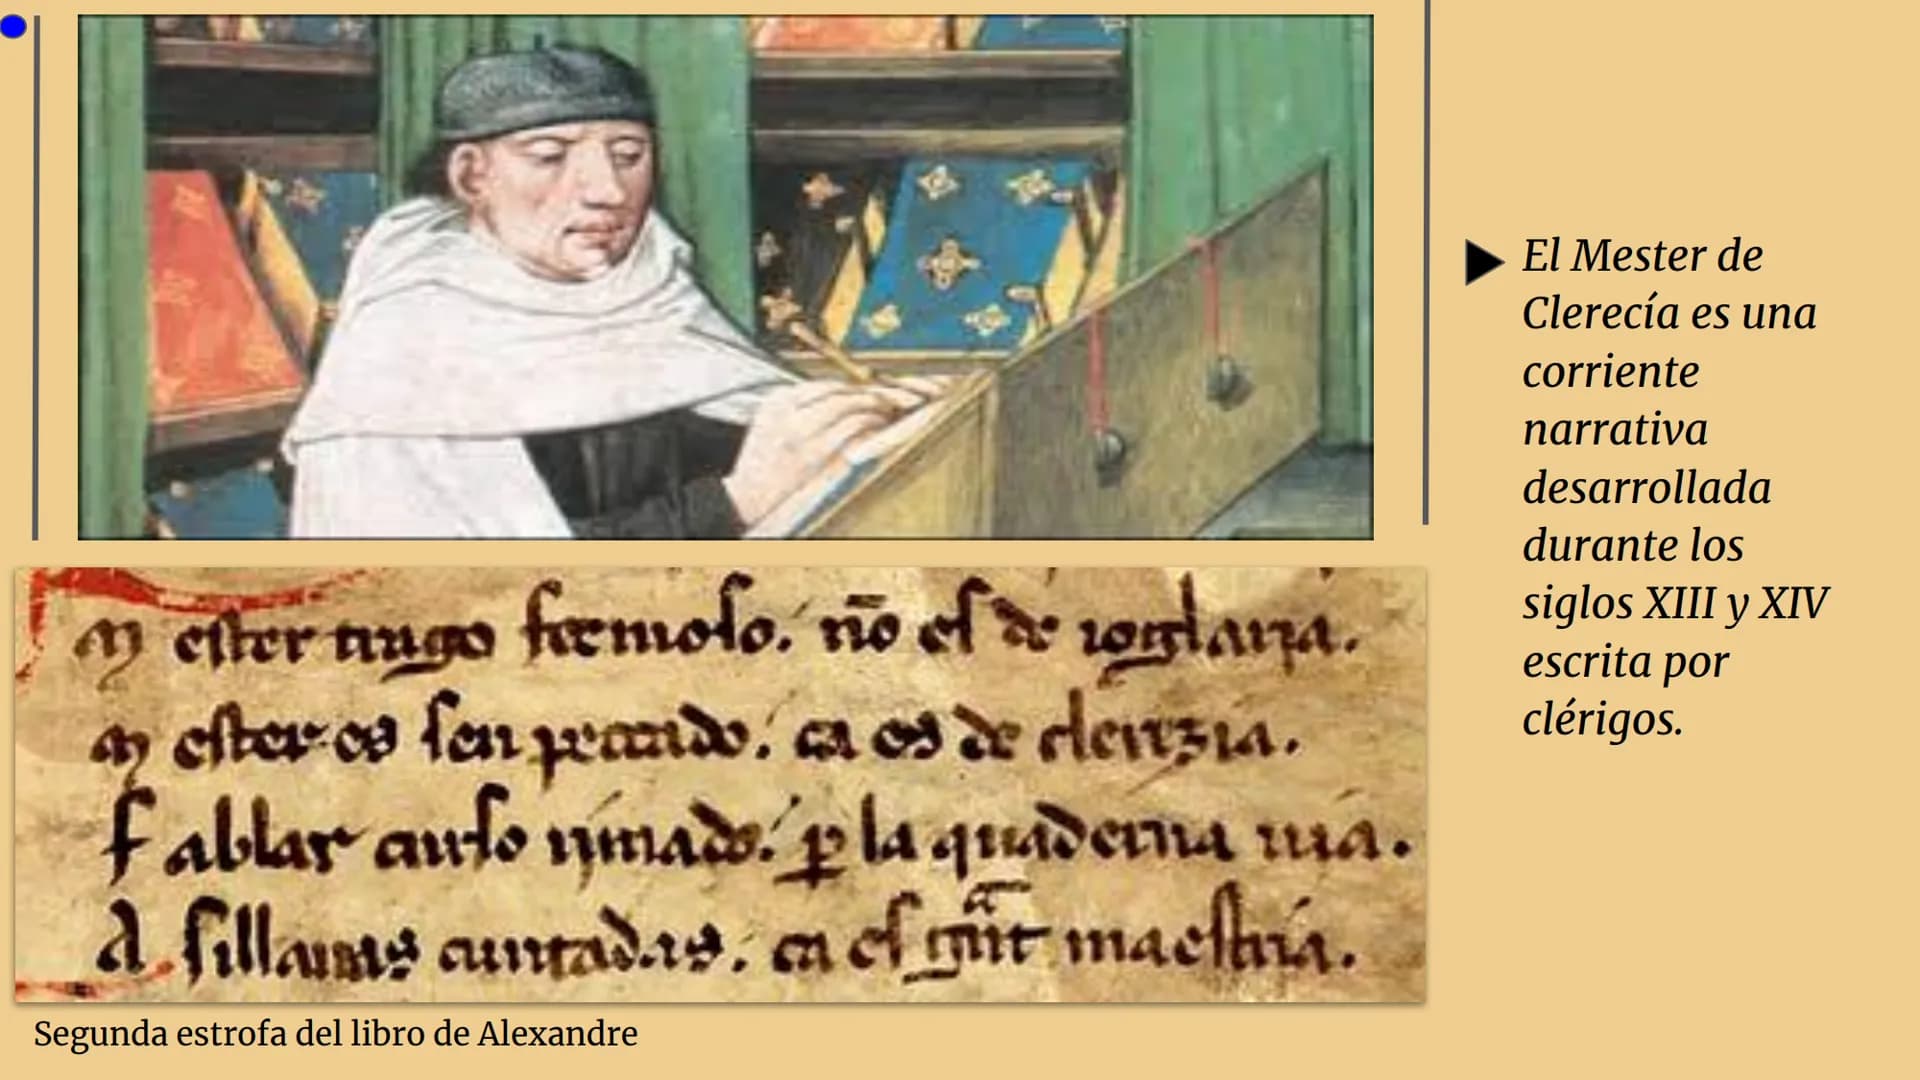 El Mester de
Clerecía es una
corriente
narrativa
desarrollada
durante los
siglos XIII y XIV
escrita por
clérigos.
M ester trago fermoso. nõ es de ioglaria.
M ester es sen pecado. ca es de clerezia.
F ablar curso rimado. p la quaderna uia.
A sillauas cuntadas. ca es grãt maestria.
Segunda estrofa del libro de Alexandre